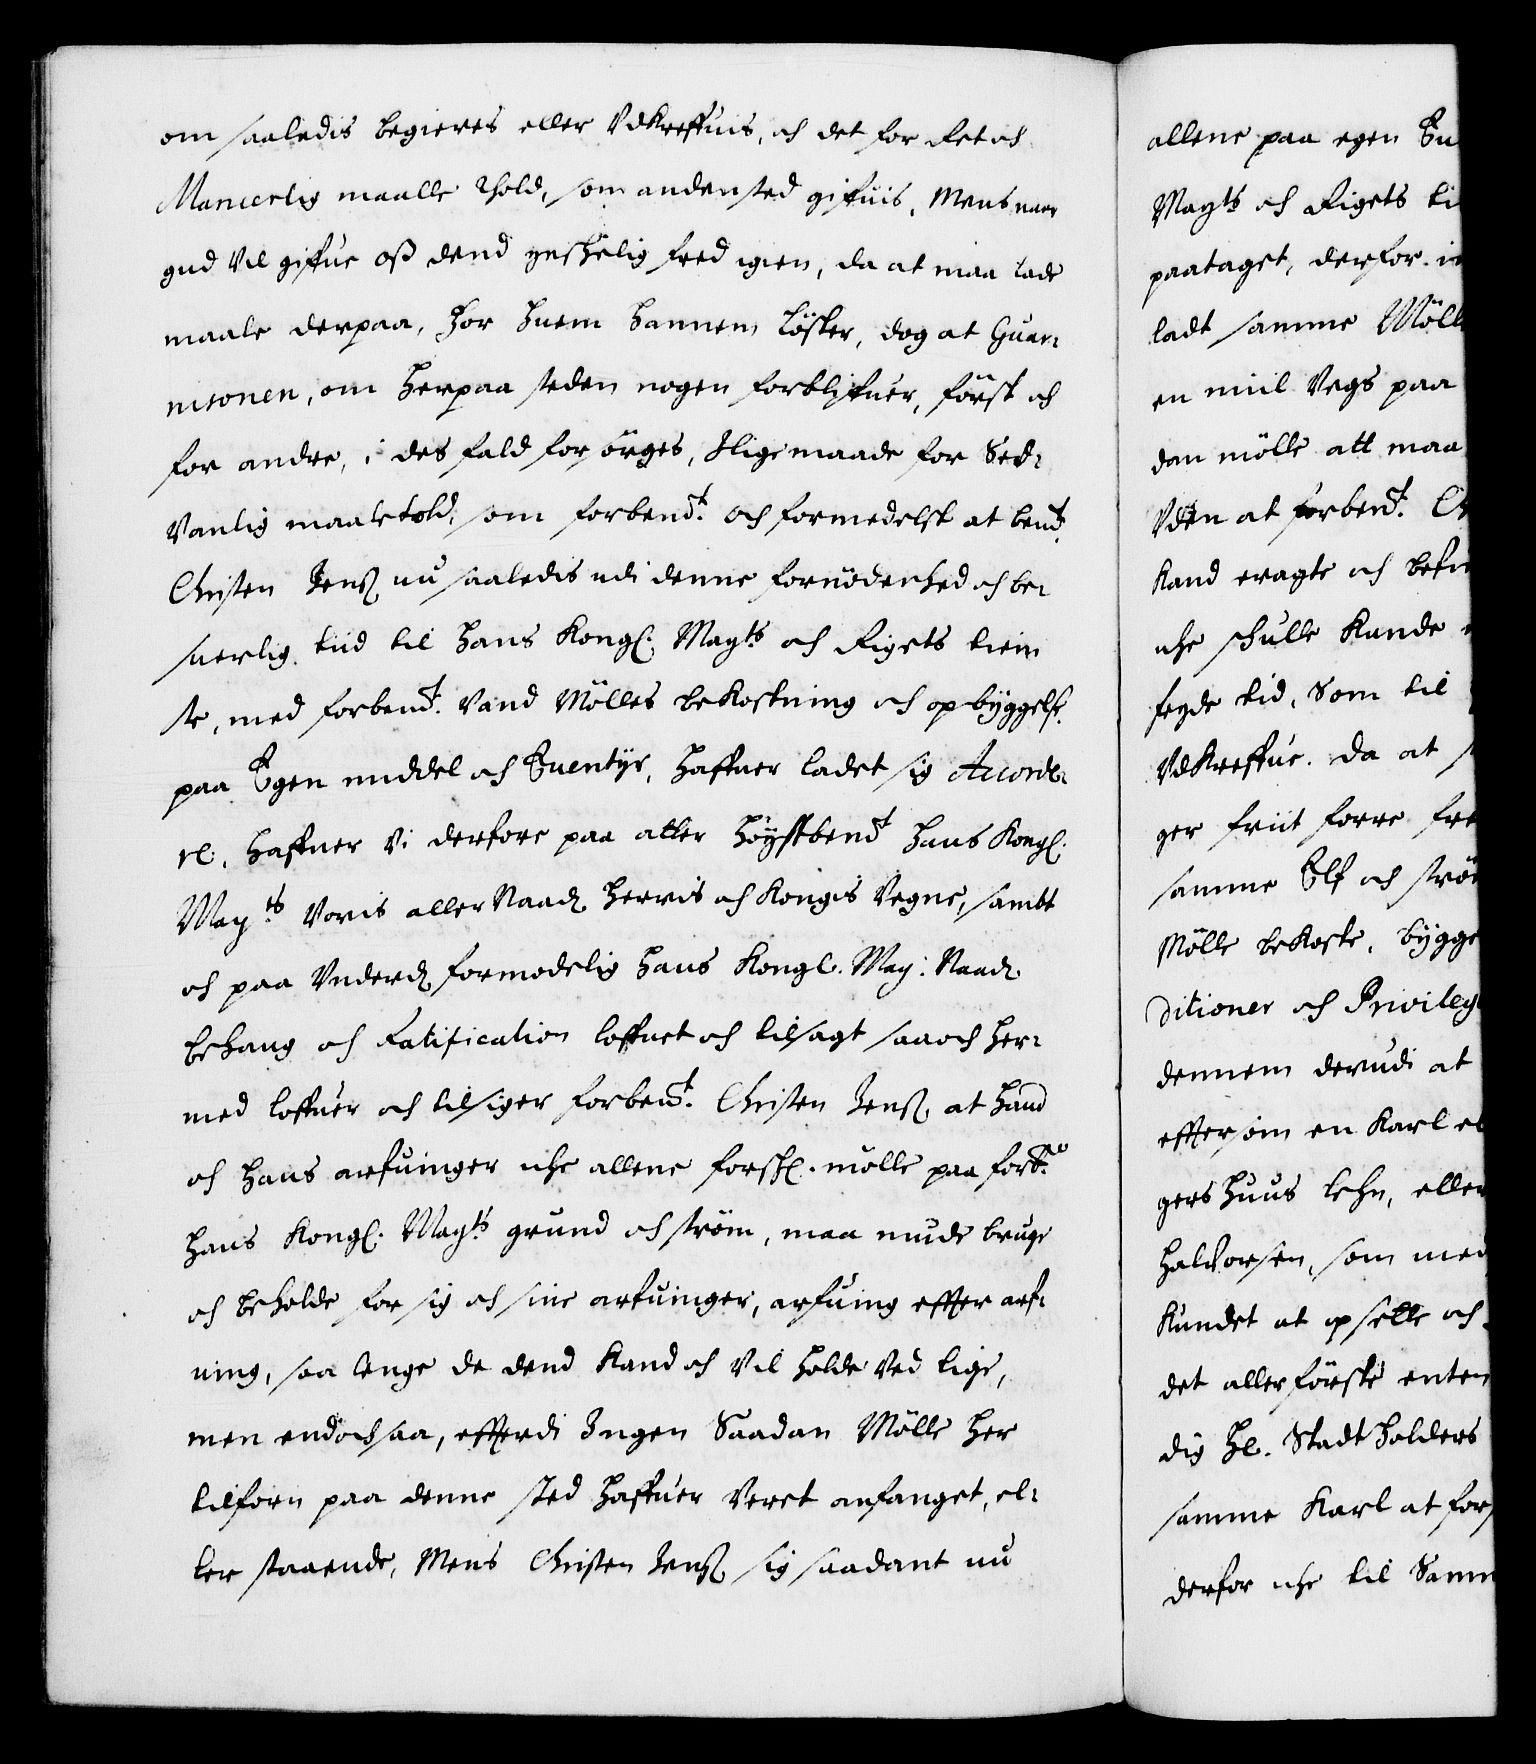 om saaledis begieres eller Vdkreffuis, och det for Ret och
Manerlig maalle thold, som anden sted gifuis, Mens naar
gud Vil giffue oss dend ynshelig fred igien, da at maa lade
maale derpaa, hor huem hannem løster, dog at Guar-
nisonen, om herpaa steden nogen forblifuer, først och
for andre, i des fald forsørges, lige maade for Sed-
vanlig maaletold, som forbend.t Och formedelst at bend.t
Christen Jenß nu saaledis udi denne fornødenhed och be-
suerlig tiid til hans Kongl: Mayts och Rigets tieni
ste, med forbend.t Vand Mølles bekostning och opbyggelse
paa Egen middel och Euentyr, haffuer ladet sig Accorde-
re, haffuer Vi derfore paa atter høystbend.t hans Kongl:
May:ts Voris aller Naad: herris och Kongis Vegne, sambt
och paa Vnderd: formodelig hans Kongl. May: Naad:
behang och Ratification loffuet och tilsagt saa och her-
med loffuer och tilsiger forbend.t Christen Jenß, at hand
och hans arfuinger iche allene forskr: mølle paa forb.te
hans Kongl: Mayts grund och strøm, maa niude bruge
och beholde for sig och sine arfuinger, arfuing effter arf-
uing, saa lenge de dend Kand och Vil holde Ved lige,
men endochsaa, effterdi Ingen Saadan Mølle her
tilforn paa denne sted haffuer Veret anfanget, el-
ler staaende, Mens Christen Jenß sig saadant nu
allene paa egen Eu
Mayts och Rigets ti
paataget, derfor
ladt samme Møll
en miil Vegs paa
dan mølle att maa
Vden at forbend.t C
Kand eragte och befi
iche schulle Kunde
feyde tid, Som til
Vdkreffue. Da at
ger friit forre fre
samme Elf och strø
Mølle bekoste, bygge
ditioner och Privileg
dennem derudi at
effter som en Karl
gershuus lehn, eller
halvorsen, som med
Kundet at opsette och
det allerførste enten
dig Hr. Stadtholders
samme Karl at for
derfor iche til Samm